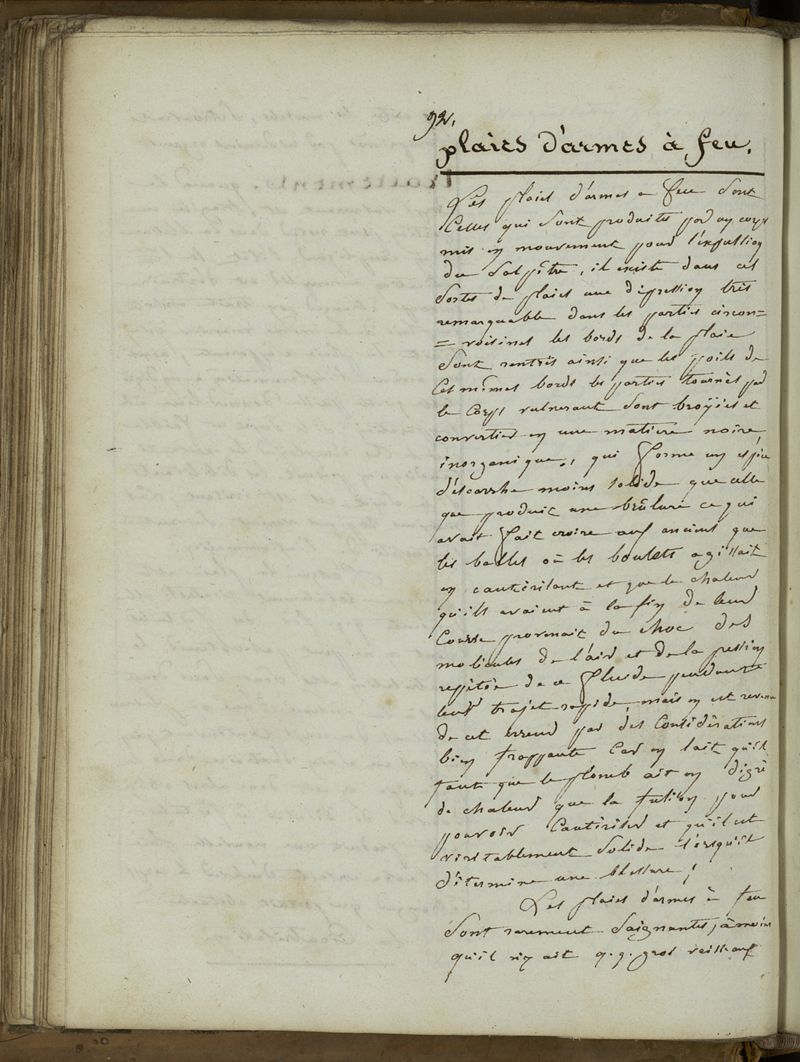 92.
plaies d'armes à feu.
Les plaies d'armes a feu sont
Celles qui sont produites par un corps
mis en mouvement pour l'expultion
du Salpêtre, il existe dans ces
sortes de plaies une dépression très
remarquable dans les parties circon=
=voisines les bords de la plaie
sont rentrés ainsi que les poils de
Ces mêmes bords les parties tournés par
le Corps vulnerant sont broÿiés et
converties en une matiere noire
inorganique, qui forme un espèce
d'éscarrhe moins solide que celle
que produit une brûlure ce qui
avait fait croire aux anciens que
les balles où les boulets agissait
en cautérisant et que la chaleur
qu'ils avaient à la fin de leur
Course provenait du choc des
molécules de l'air et de la pression
repétée de ce fluide pendant
leur trajet rapide, mais on est revenu
de cet erreur par des Considérations
bien frappante Car on sait qu'il
faut que le plomb ait un dégré
de chaleur que la fusion pour
pouvoir Cautériser et qu'il est
véritablement Solide lorsqu'il
détermine une blessure,
Les plaies d'armes à feu
sont rarement Saignantes, à moins
qu'il n'y ait q.q. gros vaisseaux